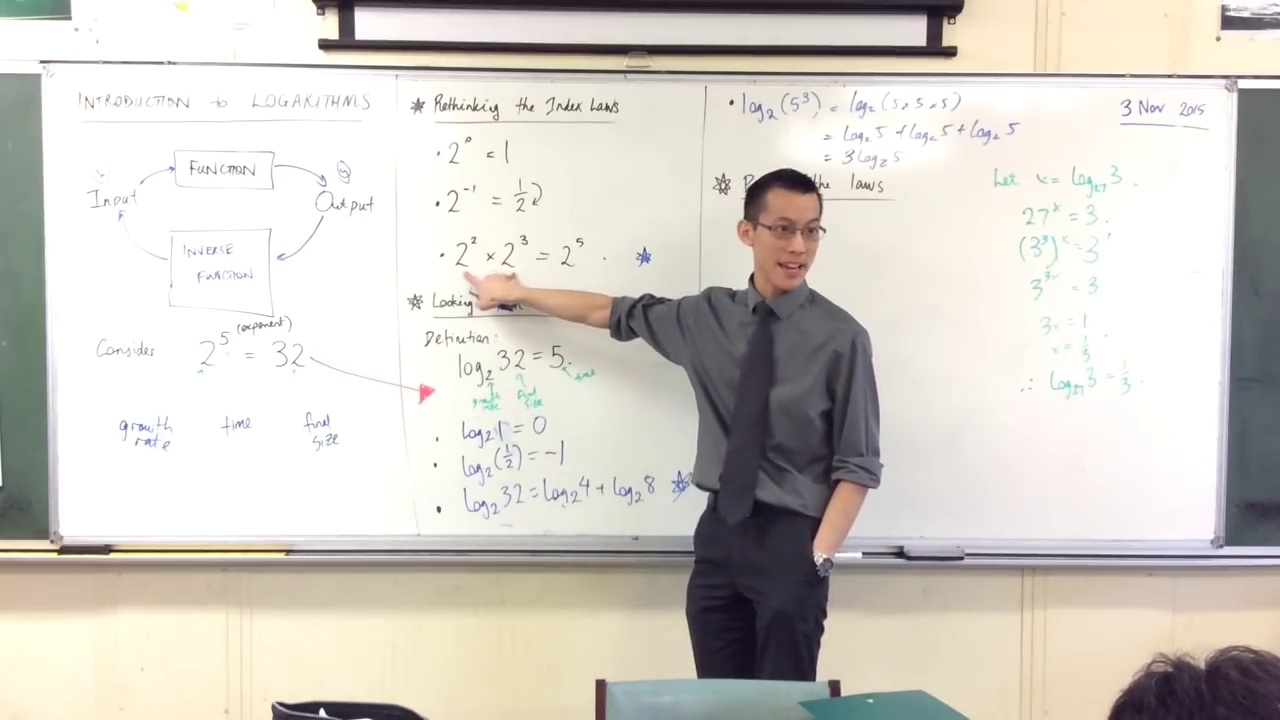 INTRODUCTION to LOGARITHMS
FUNCTION
Input
Output
INVERSE
FUNCTION
(exponent)
Consider 2⁵ = 32
growth rate
time
final size
Rethinking the Index Laws
• 2⁰ = 1
• 2⁻¹ = 1/2
• 2² × 2³ = 2⁵.
Looking
Definition:
log₂ 32 = 5.
growth rate
final size
time
• log₂ 1 = 0
• log₂(1/2) = -1
• log₂ 32 = log₂ 4 + log₂ 8
• log₂(5³) = log₂(5×5×5)
= log₂ 5 + log₂ 5 + log₂ 5
= 3 log₂ 5
the laws
3 Nov 2015
Let x = log₂₇ 3.
27ˣ = 3.
(3³)ˣ = 3¹
3³ˣ = 3
3x = 1
x = 1/3.
∴ log₂₇ 3 = 1/3.